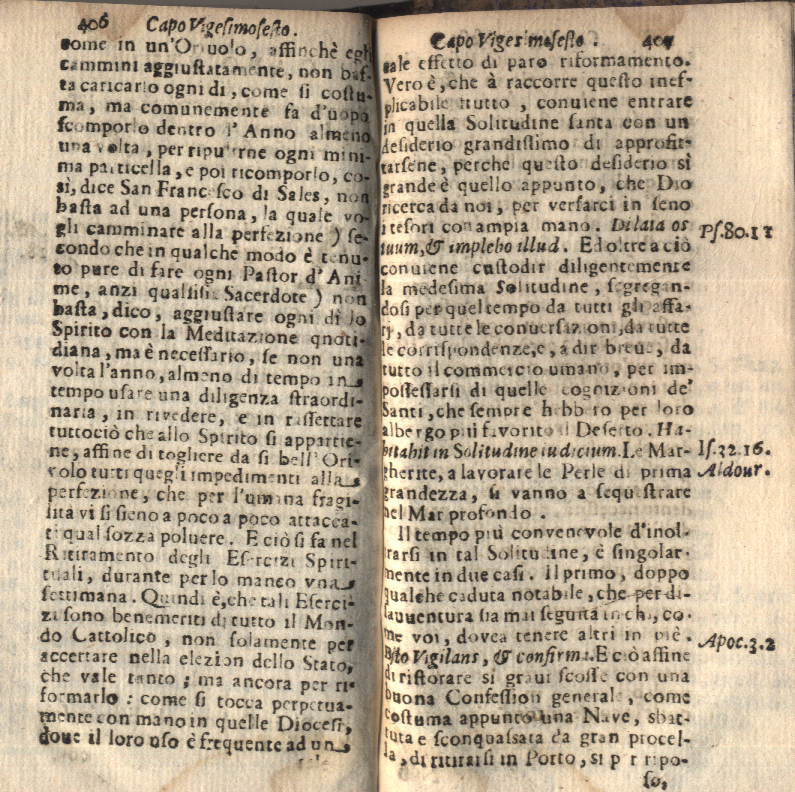 406 Capo Vigesimosesto.
come in un'Oriuolo, affinchè egli
cammini aggiuſtatamente, non baſ-
ta caricarlo ogni dì, come ſi coſtu-
ma, ma comunemente fa d'uopo
ſcomporlo dentro l'Anno almeno
una volta, per ripulirne ogni mini-
ma particella, e poi ricomporlo, co-
sì, dice San Franceſco di Sales, non
baſta ad una perſona, la quale vo-
gli camminare alla perfezione ) ſe-
condo che in qualche modo è tenu-
to pure di fare ogni Paſtor d'Ani-
me, anzi qualſiſia Sacerdote ) non
baſta, dico, aggiuſtare ogni dì lo
Spirito con la Meditazione quoti-
diana, ma è neceſſario, ſe non una
volta l'anno, almeno di tempo in
tempo uſare una diligenza ſtraordi-
naria, in rivedere, e in raſſettare
tuttociò che allo Spirito ſi appartie-
ne, affine di togliere da sì bell'Ori-
volo tutti quegli impedimenti alla
perfezione, che per l'umana fragi-
lità vi ſi ſieno a poco a poco attacca-
ti qual ſozza polvere. E ciò ſi fa nel
Ritiramento degli Eſercizi Spiri-
tuali, durante per lo manco vna
ſettimana. Quindi è, che tali Eſerci-
zi ſono benemeriti di tutto il Mon-
do Cattolico, non ſolamente per
accertare nella elezion dello Stato,
che vale tanto ; ma ancora per ri-
formarlo : come ſi tocca perpetua-
mente con mano in quelle Dioceſi,
doue il loro uſo è frequente ad un
Capo Vigesimosesto. 407
tale effetto di puro riformamento.
Vero è, che à raccorre queſto ineſ-
plicabile frutto, conuiene entrare
in quella Solitudine ſanta con un
deſiderio grandiſſimo di approfit-
tarſene, perche queſto deſiderio sì
grande è quello appunto, che Dio
ricerca da noi, per verſarci in ſeno
i teſori con ampia mano. Dilata os
tuum, & implebo illud. Ed oltre a ciò
Pſ.80.11
conuiene cuſtodir diligentemente
la medeſima Solitudine, ſegregan-
doſi per quel tempo da tutti gli affa-
ri, da tutte le conuerſazioni, da tutte
le corriſpondenze, e, a dir breue, da
tutto il commercio umano, per im-
poſſeſſarſi di quelle cognizioni de'
Santi, che ſempre hebbero per loro
albergo più favorito il Deſerto. Ha-
bitabit in Solitudine iudicium. Le Mar-
Iſ.32.16.
gherite, a lavorare le Perle di prima
Aldour.
grandezza, ſi vanno a ſequeſtrare
nel Mar profondo.
Il tempo più convenevole d'inol-
trarſi in tal Solitudine, è ſingolar-
mente in due caſi. Il primo, doppo
qualche caduta notabile, che per di-
ſauuentura ſia mai ſeguita in chi, co-
me voi, dovea tenere altri in piè.
Eſto Vigilans, & confirma. E ciò affine
Apoc.3.2
di riſtorare sì graui ſcoſſe con una
buona Confeſſion generale, come
coſtuma appunto una Nave, sbat-
tuta e ſconquaſſata da gran procel-
la, di ritirarſi in Porto, ſì per ripo-
ſo,